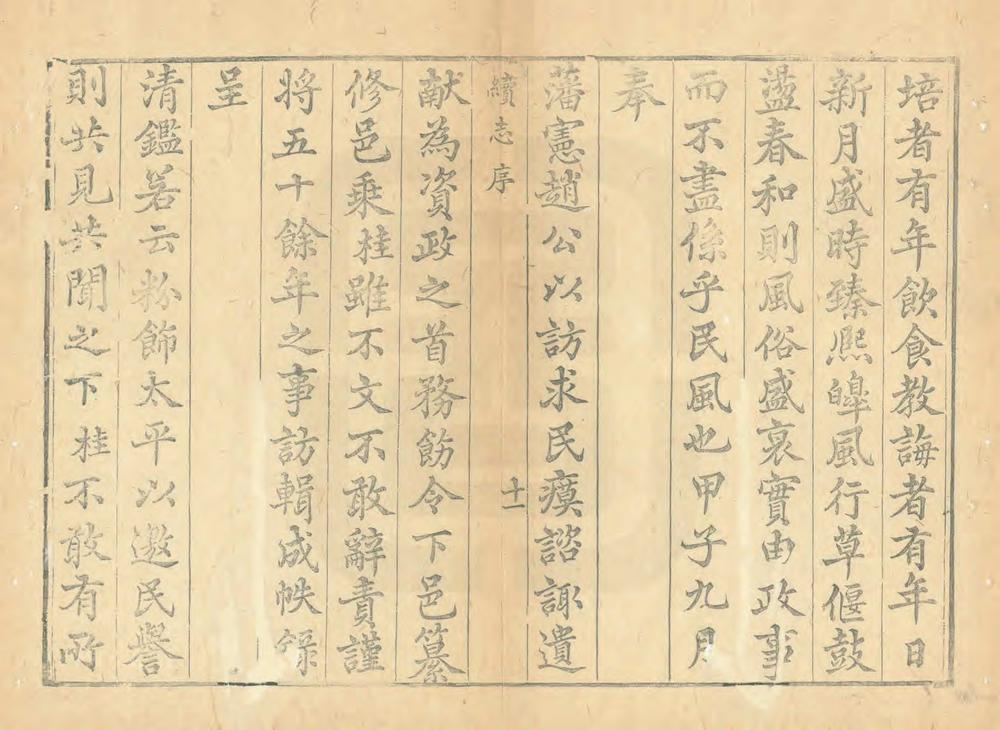 培者有年飲食教誨者有年日
新月盛時臻熈皥風行草偃鼓
盪春和則風俗盛衰實由政事
而不盡係乎民風也甲子九月
奉
藩憲趙公以訪求民瘼諮諏遺
續志序
十一
献為資政之首務飭令下邑纂
修邑乘桂雖不文不敢辭責謹
將五十餘年之事訪輯成帙錄
呈
清鑑若云粉飾太平以邀民譽
則共見共聞之下桂不敢有所